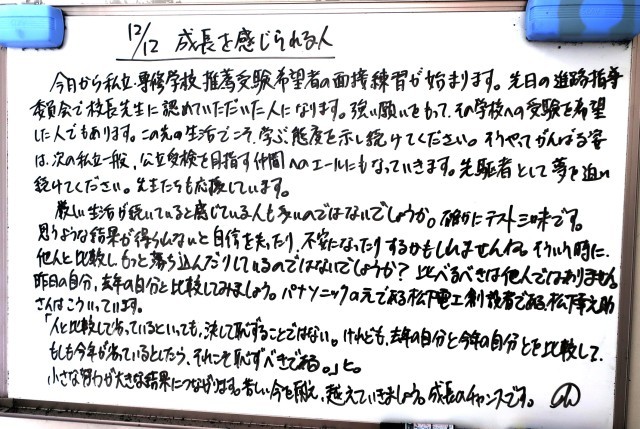 12/12 成長を感じられる人
今日から私立・専修学校推薦受験希望者の面接練習が始まります。先日の進路指導
委員会で校長先生に認めていただいた人になります。強い願いをもって、その学校への受験を希望
した人でもあります。この先の生活でこそ、学ぶ態度を示し続けてください。そうやってがんばる姿
は、次の私立一般、公立受検を目指す仲間へのエールにもなっていきます。先駆者として夢を追い
続けてください。先生たちも応援しています。
厳しい生活が続いていると感じている人も多いのではないでしょうか。確かにテスト三昧です。
思うような結果が得られないと自信を失ったり、不安になったりするかもしれませんね。そういう時に、
他人と比較しもっと落ち込んだりしているのではないでしょうか?比べるべきは他人ではありません。
昨日の自分、去年の自分と比較してみましょう。パナソニックの元である松下電工創設者である、松下幸之助
さんはこういっています。
「人と比較して劣っているといっても、決して恥ずることではない。けれども、去年の自分と今年の自分とを比較して、
もしも今年が劣っているとしたら、それこそ恥ずべきである。」と。
小さな努力が大きな結果につながります。苦しい今を耐え、越えていきましょう。成長のチャンスです。